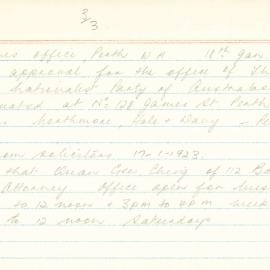 3/3
office, Perth W.A. 18th Jan
approval for the office of
Nationalist Party of Australas
at No 128 James St. Perth
Hale & Davy
solicitors 17-1-1923.
that Kwan Gee Ching of 112
Attorney Office open for
to 12 noon & 3pm to 4pm week
to 12 noon Saturdays